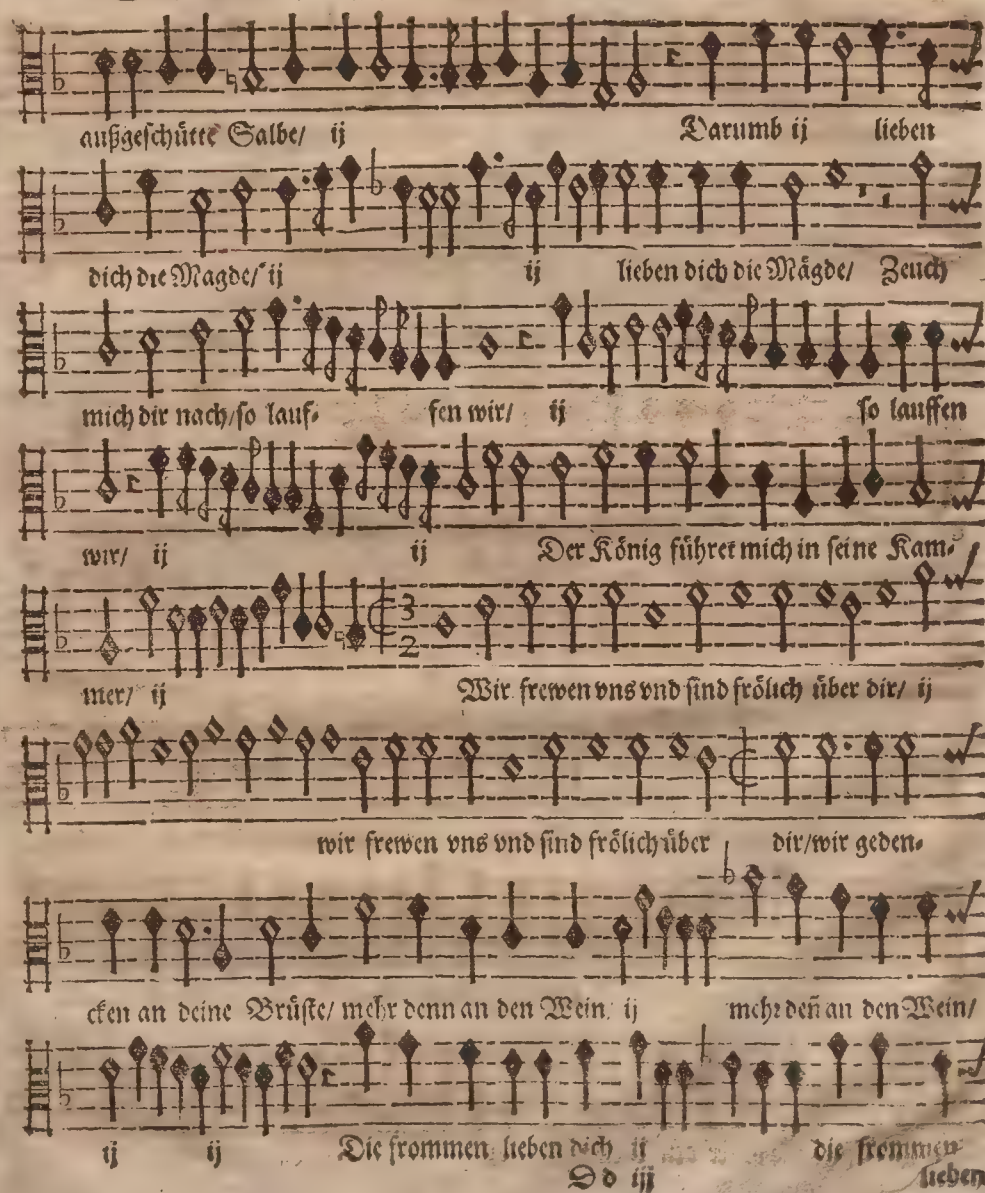 außgeschütte Salbe/ ij Darumb ij lieben
dich die Magde/ ij ij lieben dich die Mägde/ Zeuch
mich dir nach/so lauf- fen wir/ ij so lauffen
wir/ ij ij Der König führet mich in seine Kam-
3
2
mer/ ij Wir frewen vns vnd sind frölich über dir/ ij
wir frewen vns vnd sind frölich über dir/wir geden-
cken an deine Brüste/ mehr denn an den Wein/ ij mehr deñ an den Wein/
ij ij Die frommen lieben dich ij die frommen
Dd iij lieben